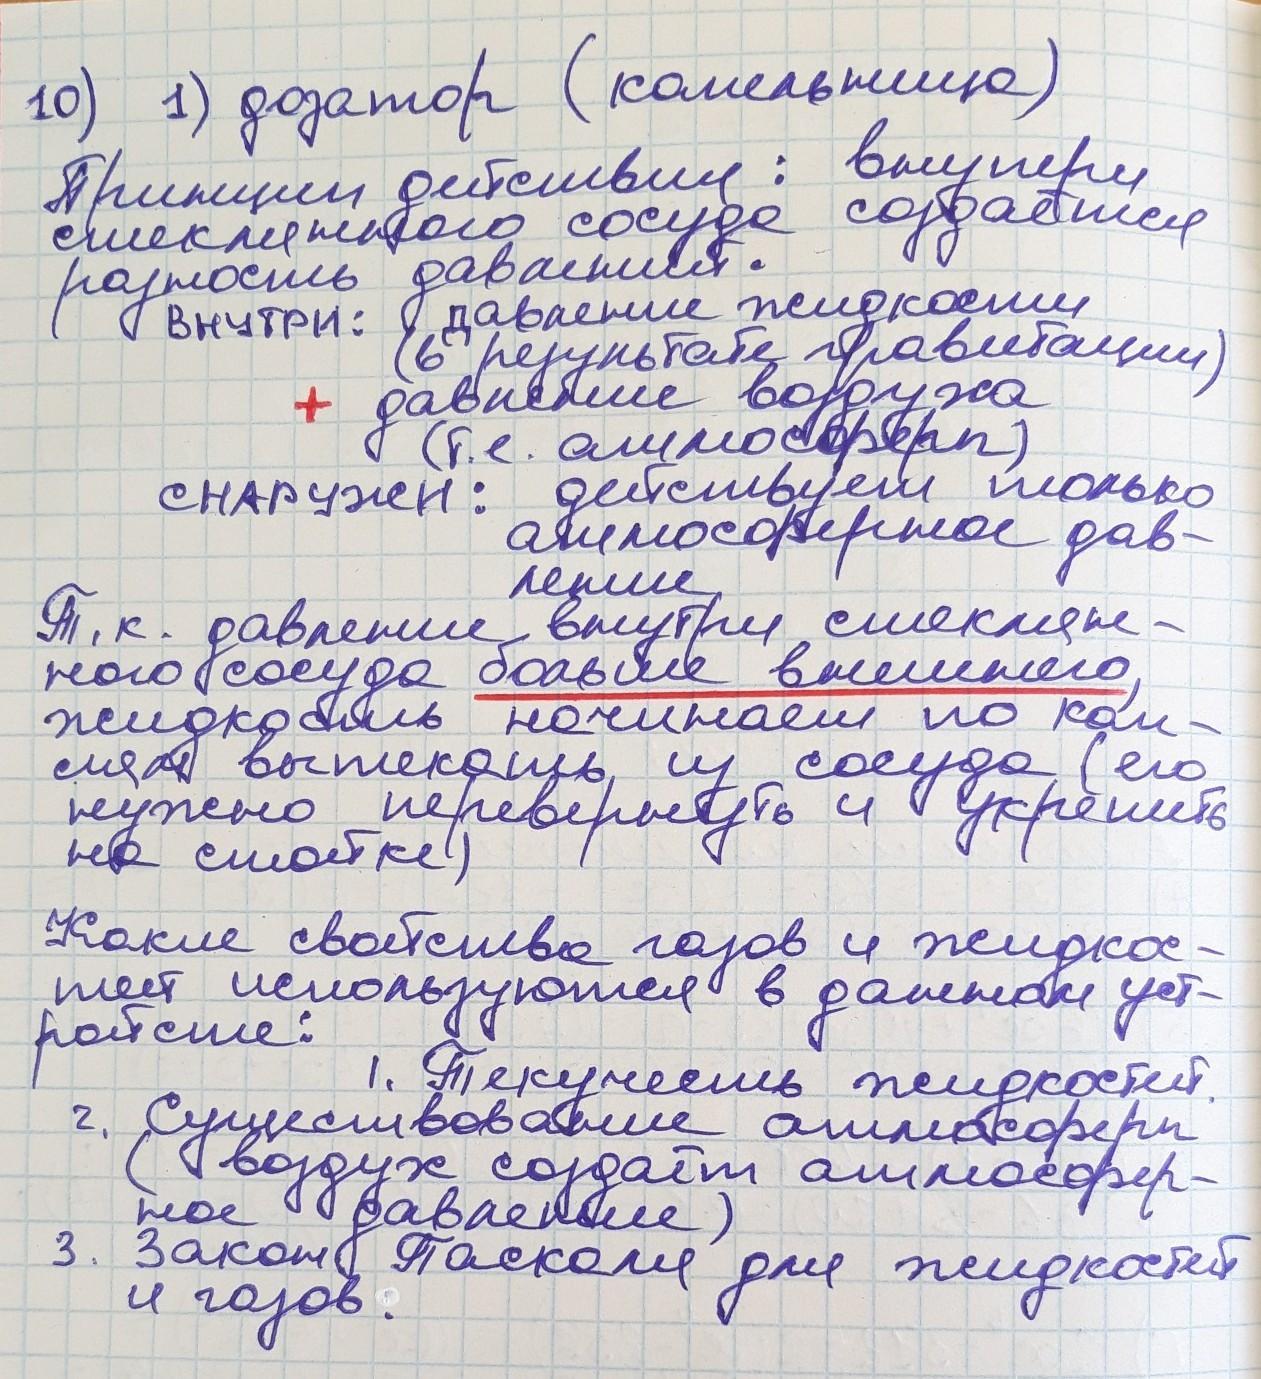 10) 1) дозатор (капельница)
Принцип действия: внутри
стеклянного сосуда создаётся
разность давлений.
ВНУТРИ: давление жидкости
(в результате гравитации)
+ давление воздуха
(т.е. атмосферы)
СНАРУЖИ: действует только
атмосферное дав-
ление
Т.к. давление внутри стеклян-
ного сосуда больше внешнего,
жидкость начинает по кап-
лям вытекать из сосуда (его
нужно перевернуть и укрепить
на стойке)
Какие свойства газов и жидкос-
тей используются в данном уст-
ройстве:
1. Текучесть жидкостей.
2. Существование атмосферы
(воздух создаёт атмосфер-
ное давление)
3. Закон Паскаля для жидкостей
и газов.